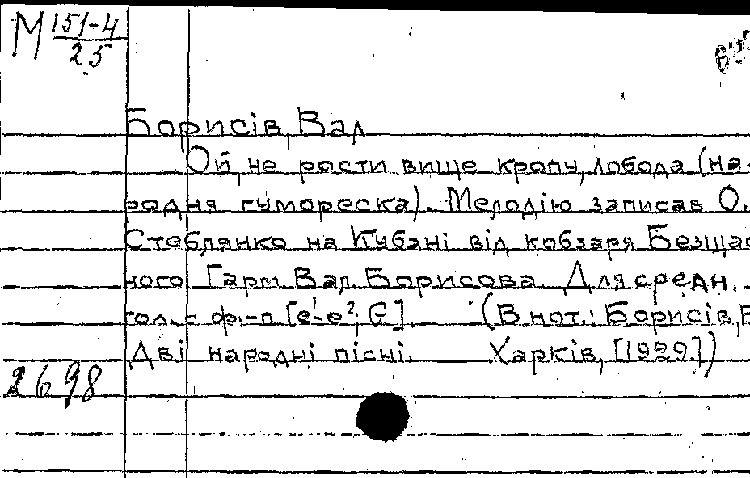 М 151-4
25
Борисів, Вал
Ой, не рости вище кропу, лобода (на-
родня гумореска). Мелодію записав О.
Стеблянко на Кубані від кобзаря Безщас
ного Гарм. Вал. Борисова. Для средн.
гол. с ф-п [e¹-e², G]. (В нот.: Борисів, В
Дві народні пісні. Харків, [1929.])
2698